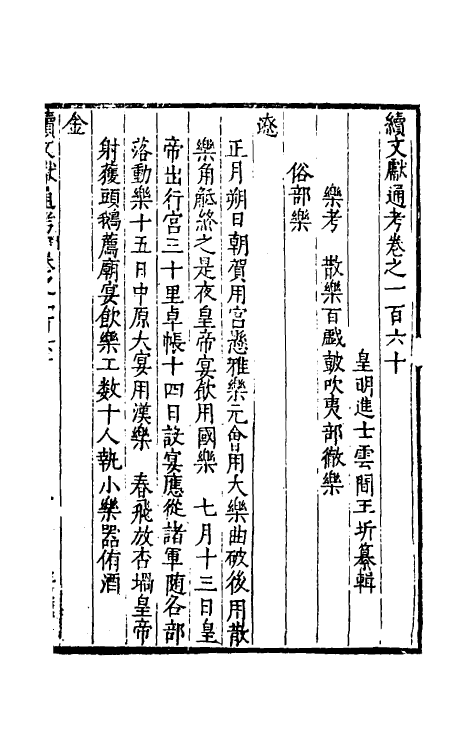 續文獻通考卷之一百六十
皇明進士雲間王圻纂輯
樂考　散樂百戲鼓吹夷部徹樂
俗部樂
遼
正月朔日朝賀用宮懸雅樂元會用大樂曲破後用散
樂角觝終之是夜皇帝宴飲用國樂　七月十三日皇
帝出行宮三十里卓帳十四日設宴應從諸軍随各部
落動樂十五日中原大宴用漢樂　春飛放杏堝皇帝
射獲頭鵝薦廟宴飲樂工數十人執小樂器侑酒
金
續文獻通考卷之一百六十